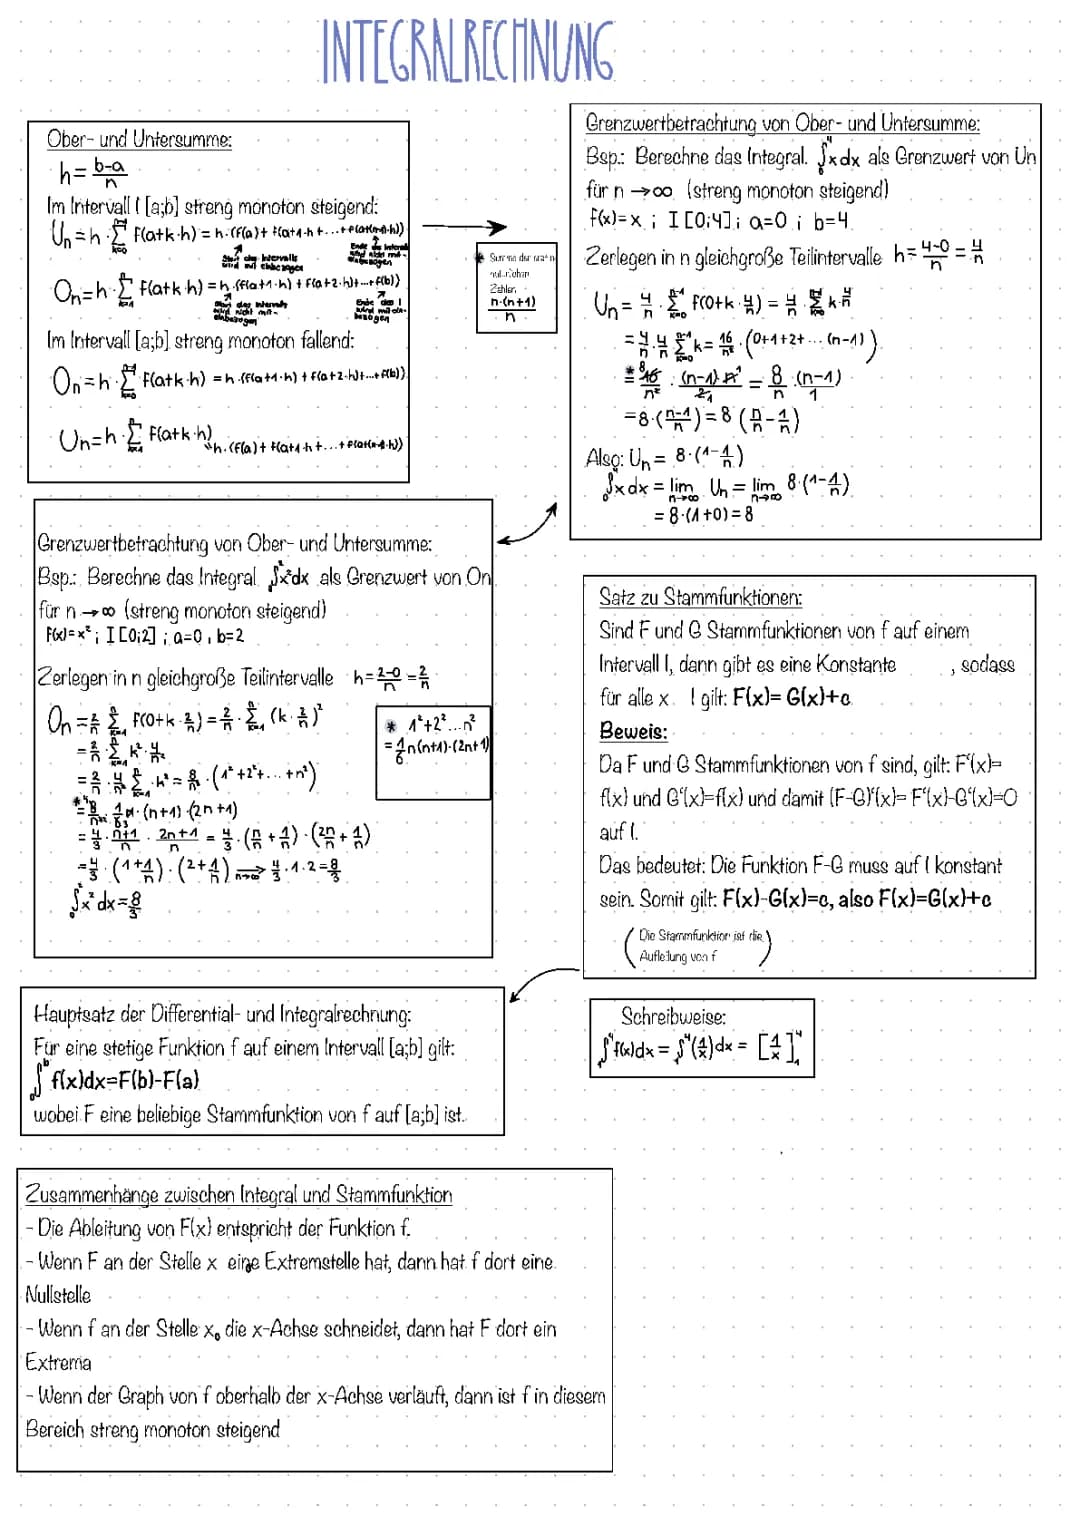 INTEGRALRECHNUNG
Ober- und Untersumme:
h = b-a/n
Im Intervall I [a;b] streng monoton steigend:
Uₙ = h · Σ f(a+k·h) = h·(f(a)+f(a+1·h+...+f(a+(n-1)·h))
Start des Intervalls wird mit einbezogen
Ende des Intervalls wird nicht mit-einbezogen
Oₙ = h · Σ f(a+k·h) = h·(f(a+1·h)+f(a+2·h)+...+f(b))
Start des Intervalls wird nicht mit-einbezogen
Ende des I wird mit ein-bezogen
Im Intervall [a;b] streng monoton fallend:
Oₙ = h · Σ f(a+k·h) = h·(f(a+1·h)+f(a+2·h)+...+f(b))
Uₙ = h · Σ f(a+k·h)
h·(f(a)+f(a+1·h+...+f(a+(n-1)·h))
* Summe der ersten n
natürlichen
Zahlen:
n·(n+1)/n
Grenzwertbetrachtung von Ober- und Untersumme:
Bsp.: Berechne das Integral. ₀∫⁴ x dx als Grenzwert von Un
für n → ∞ (streng monoton steigend)
f(x)=x ; I [0;4] ; a=0 ; b=4
Zerlegen in n gleichgroße Teilintervalle h = 4-0/n = 4/n
Uₙ = 4/n · Σ f(0+k·4/n) = 4/n · Σ k·4/n
= 4/n · 4/n Σ k = 16/n² · (0+1+2+...(n-1))
*= 16/n² · (n-1)·n/2 = 8/n · (n-1)/1
= 8·(n-1/n) = 8 (n/n - 1/n)
Also: Uₙ = 8·(1-1/n)
₀∫⁴ x dx = lim n→∞ Uₙ = lim n→∞ 8·(1-1/n)
= 8·(1+0) = 8
Grenzwertbetrachtung von Ober- und Untersumme:
Bsp.: Berechne das Integral ₀∫² x² dx als Grenzwert von On
für n → ∞ (streng monoton steigend)
f(x)=x² ; I [0;2] ; a=0 , b=2
Zerlegen in n gleichgroße Teilintervalle h = 2-0/n = 2/n
Oₙ = 2/n Σ f(0+k·2/n) = 2/n · Σ (k·2/n)²
= 2/n · Σ k²·4/n²
= 2/n · 4/n² Σ k² = 8/n³ · (1²+2²+...+n²)
*= 8/n³ · 1/6 n·(n+1)·(2n+1)
= 4/3 · n+1/n · 2n+1/n = 4/3 · (n/n + 1/n) · (2n/n + 1/n)
= 4/3 · (1+1/n) · (2+1/n) ⟹ n→∞ 4/3 · 1·2 = 8/3
₀∫² x² dx = 8/3
* 1²+2²...n²
= 1/6 n(n+1)·(2n+1)
Satz zu Stammfunktionen:
Sind F und G Stammfunktionen von f auf einem
Intervall I, dann gibt es eine Konstante , sodass
für alle x I gilt: F(x)= G(x)+c
Beweis:
Da F und G Stammfunktionen von f sind, gilt: F'(x)=
f(x) und G'(x)=f(x) und damit (F-G)'(x)= F'(x)-G'(x)=0
auf I.
Das bedeutet: Die Funktion F-G muss auf I konstant
sein. Somit gilt: F(x)-G(x)=c, also F(x)=G(x)+c
(Die Stammfunktion ist die
Aufleitung von f)
Hauptsatz der Differential- und Integralrechnung:
Für eine stetige Funktion f auf einem Intervall [a;b] gilt:
ₐ∫ᵇ f(x)dx=F(b)-F(a)
wobei F eine beliebige Stammfunktion von f auf [a;b] ist.
Schreibweise:
₁∫⁴ f(x)dx = ₁∫⁴ (1/x)dx = [1/x]₁⁴
Zusammenhänge zwischen Integral und Stammfunktion
- Die Ableitung von F(x) entspricht der Funktion f.
- Wenn F an der Stelle x eine Extremstelle hat, dann hat f dort eine
Nullstelle
- Wenn f an der Stelle x₀ die x-Achse schneidet, dann hat F dort ein
Extrema
- Wenn der Graph von f oberhalb der x-Achse verläuft, dann ist f in diesem
Bereich streng monoton steigend